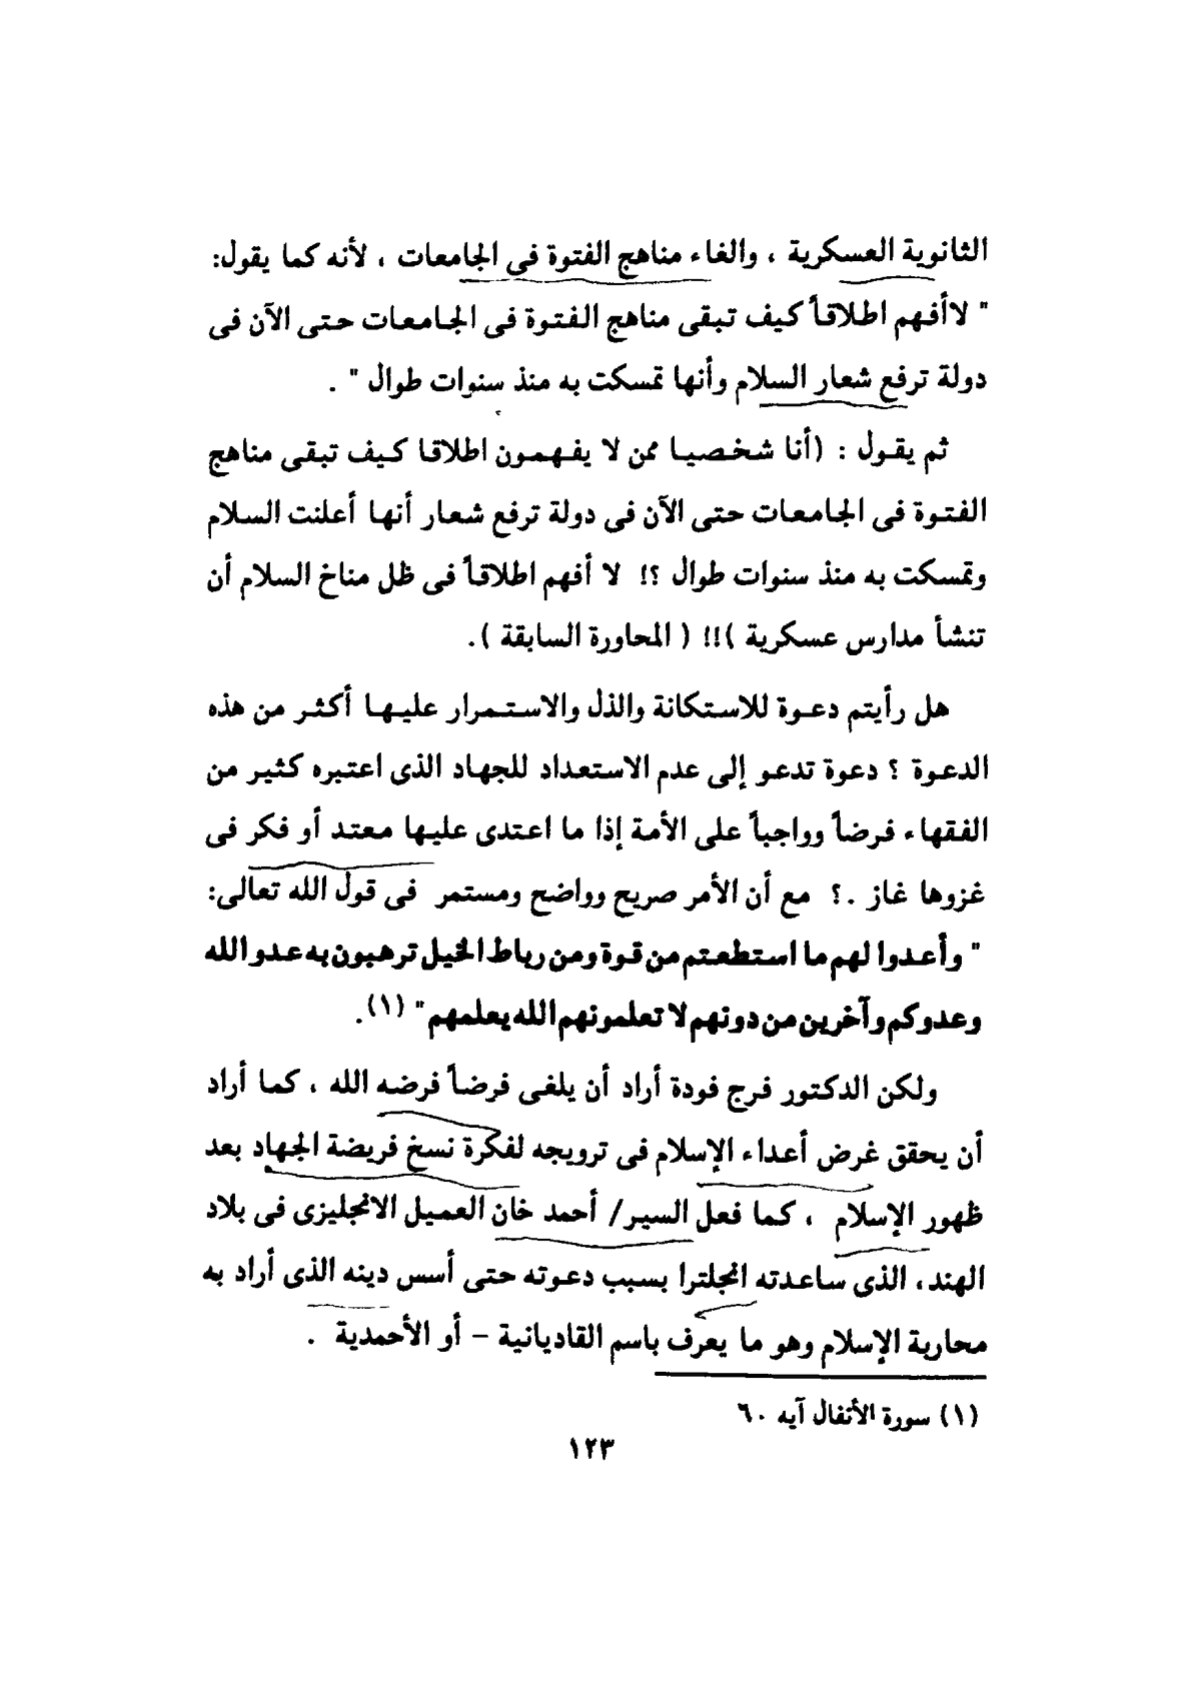 الثانوية العسكرية ، والغاء مناهج الفتوة فى الجامعات ، لأنه كما يقول:
" لاأفهم اطلاقاً كيف تبقى مناهج الفتوة فى الجامعات حتى الآن فى
دولة ترفع شعار السلام وأنها تمسكت به منذ سنوات طوال " .
ثم يقول : (أنا شخصيا ممن لا يفهمون اطلاقا كيف تبقى مناهج
الفتوة فى الجامعات حتى الآن فى دولة ترفع شعار أنها أعلنت السلام
وتمسكت به منذ سنوات طوال ؟! لا أفهم اطلاقاً فى ظل مناخ السلام أن
تنشأ مدارس عسكرية )!! ( المحاورة السابقة ).
هل رأيتم دعوة للاستكانة والذل والاستمرار عليها أكثر من هذه
الدعوة ؟ دعوة تدعو إلى عدم الاستعداد للجهاد الذى اعتبره كثير من
الفقهاء فرضاً وواجباً على الأمة إذا ما اعتدى عليها معتد أو فكر فى
غزوها غاز .؟ مع أن الأمر صريح وواضح ومستمر فى قول الله تعالى:
" وأعدوا لهم ما استطعتم من قوة ومن رباط الخيل ترهبون به عدو الله
وعدوكم وآخرين من دونهم لا تعلمونهم الله يعلمهم " (١).
ولكن الدكتور فرج فودة أراد أن يلغى فرضاً فرضه الله ، كما أراد
أن يحقق غرض أعداء الإسلام فى ترويجه لفكرة نسخ فريضة الجهاد بعد
ظهور الإسلام ، كما فعل السير/ أحمد خان العميل الانجليزى فى بلاد
الهند، الذى ساعدته انجلترا بسبب دعوته حتى أسس دينه الذى أراد به
محاربة الإسلام وهو ما يعرف باسم القاديانية – أو الأحمدية .
(١) سورة الأنفال آيه ٦٠
١٢٣